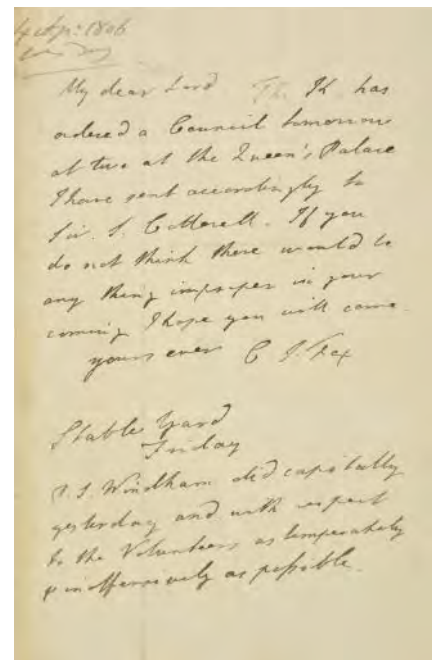 4 Apr: 1806
My dear Lord The K has
ordered a Council tomorrow
at two at the Queen's Palace
I have sent accordingly to
Sir. S. Cotterell. If you
do not think there would be
any thing improper in your
coming I hope you will come.
yours ever C J. Fox
Stable Yard
Friday
P.S. Windham did capitally
yesterday and with respect
to the Volunteers as temperately
& inoffensively as possible.